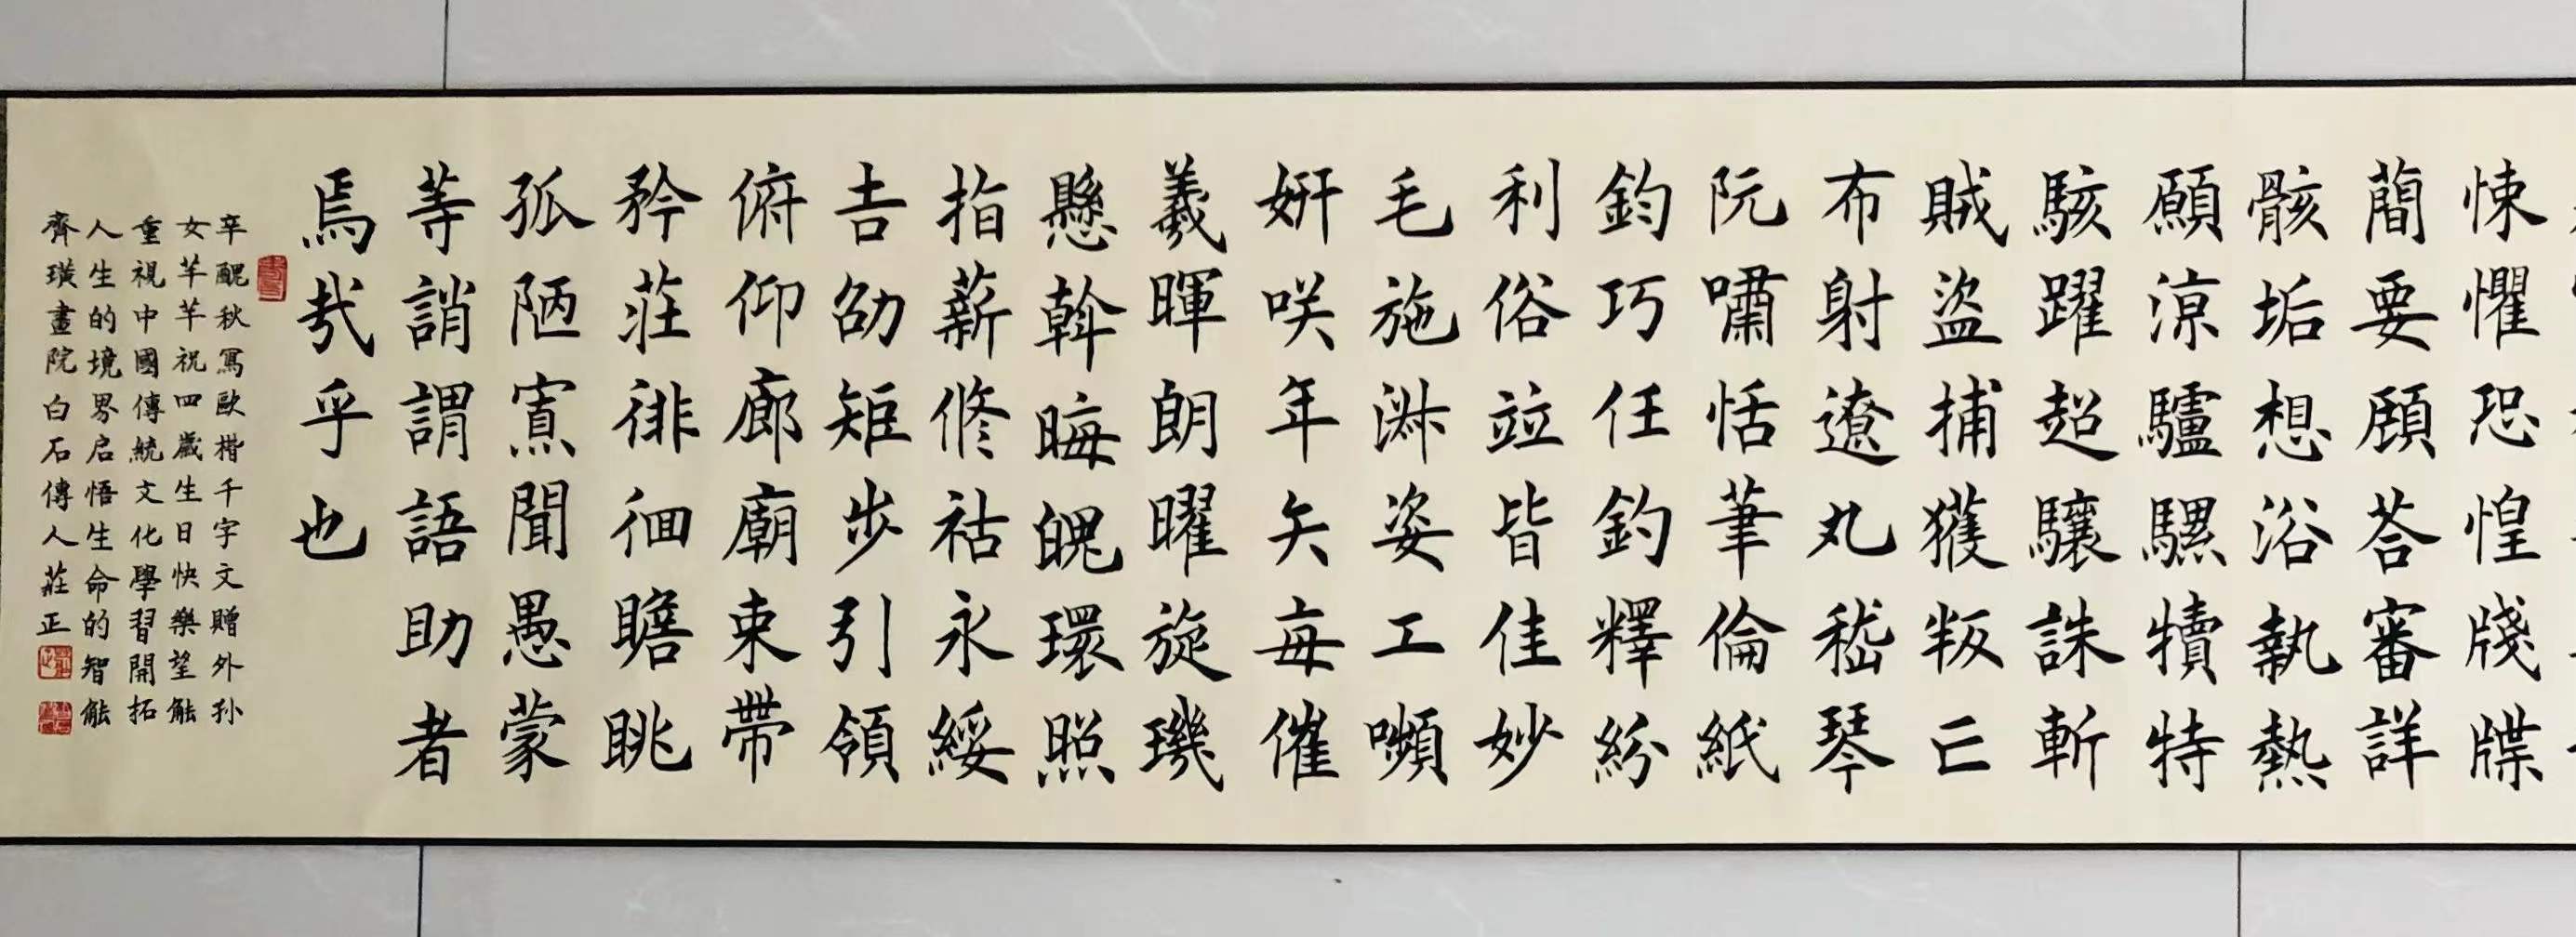 悚懼恐惶牋牒
蕳要顧荅審詳
骸垢想浴執熱
願涼驢騾犢特
駭躍超驤誅斬
賊盜捕獲叛亡
布射遼丸嵇琴
阮嘯恬筆倫紙
鈞巧任釣釋紛
利俗竝皆佳妙
毛施淋姿工嚬
妍咲年矢每催
羲暉朗曜旋璣
懸斡晦魄環照
指薪修祜永綏
吉劭矩步引領
俯仰廊廟束帶
矜莊徘徊瞻眺
孤陋寡聞愚蒙
等誚謂語助者
焉哉乎也
辛醜秋寫歐楷千字文贈外孙
女芊芊祝四歲生日快樂望能
重視中國傳統文化學習開拓
人生的境界启悟生命的智能
齊璜畫院白石傳人莊正